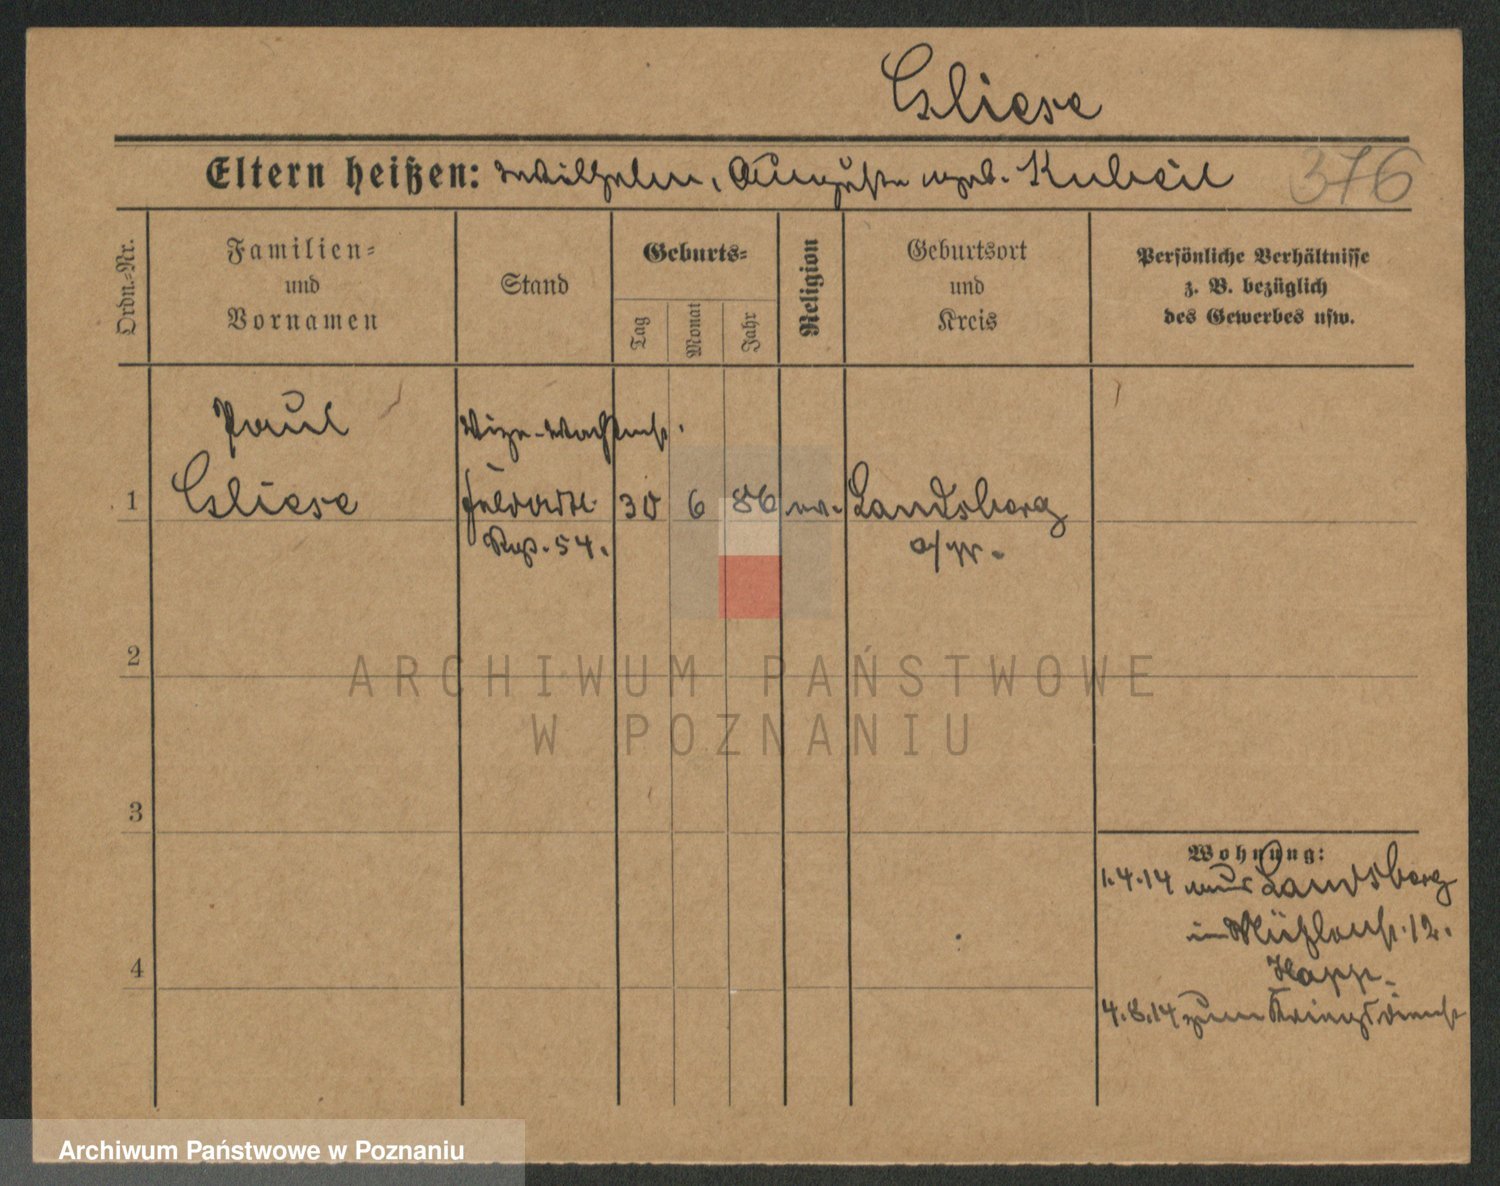 Gliese
Eltern heißen: Wilhelm, Auguste geb. Kubeil
376
Ordn.-Nr.
Familien-
und
Vornamen
Stand
Geburts-
Tag
Monat
Jahr
Religion
Geburtsort
und
Kreis
Persönliche Verhältnisse
z. B. bezüglich
des Gewerbes usw.
Paul
Vize-Wachtmstr.
1
Gliese
Feldartl.
30 6 86 ev. Landsberg
Rgt. 54.
a/W.
2
ARCHIWUM PAŃSTWOWE
W POZNANIU
3
Wohnung:
1.4.14 aus Landsberg
Mühlenstr. 12.
4
4.8.14 zum Kriegsdienst
Archiwum Państwowe w Poznaniu